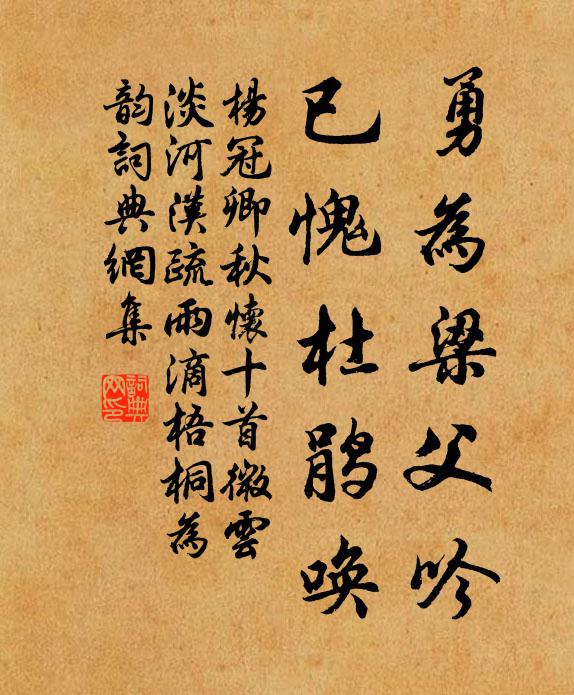 勇為梁父吟
已愧杜鵑喚
楊冠卿秋懷十首微雲
淡河漢疏雨滴梧桐為
韵詞典網集
詞典
网印